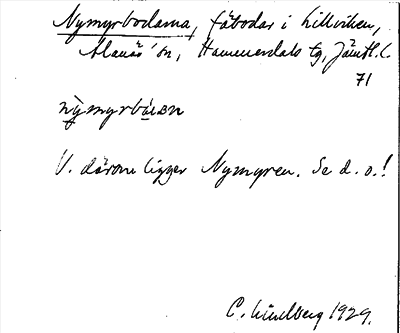 Nymyrbodarna, fäbodar i Lillviken,
Alanäs sn, Hammerdals tg, Jämtl. l.
71
nỳmyrbúan
V. därom ligger Nymyren. Se d. o.!
C. Lindberg 1929.